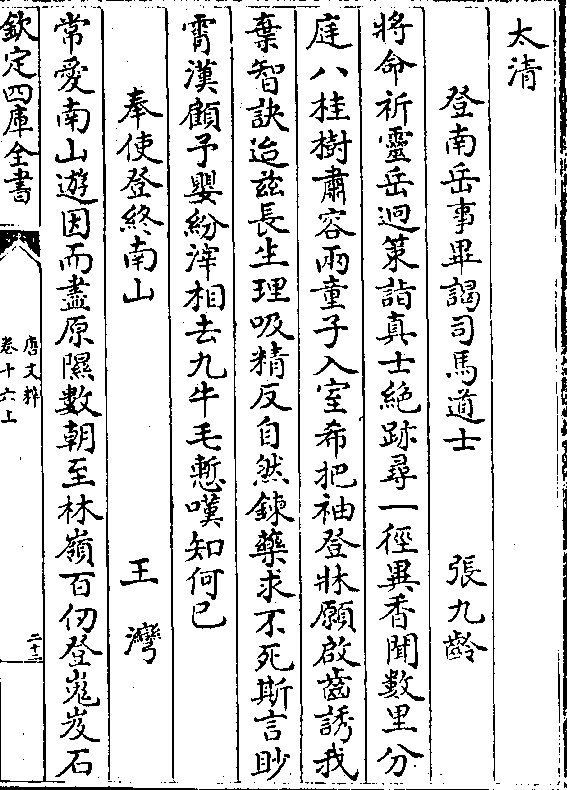 太清
登南岳事畢謁司馬道士 張九齡
將命祈靈岳迴策詣真士絶跡尋一徑異香聞數里分
庭八桂樹肅容兩童子入室希把袖登牀願啟齒誘我
棄智訣迨兹長生理吸精反自然鍊藥求不死斯言眇
霄漢顧予嬰紛滓相去九牛毛慙嘆知何已
奉使登終南山 王灣
常愛南山遊因而盡原隰數朝至林嶺百仞登嵬岌石
欽定四庫全書
唐文粹
卷十六上
二十二